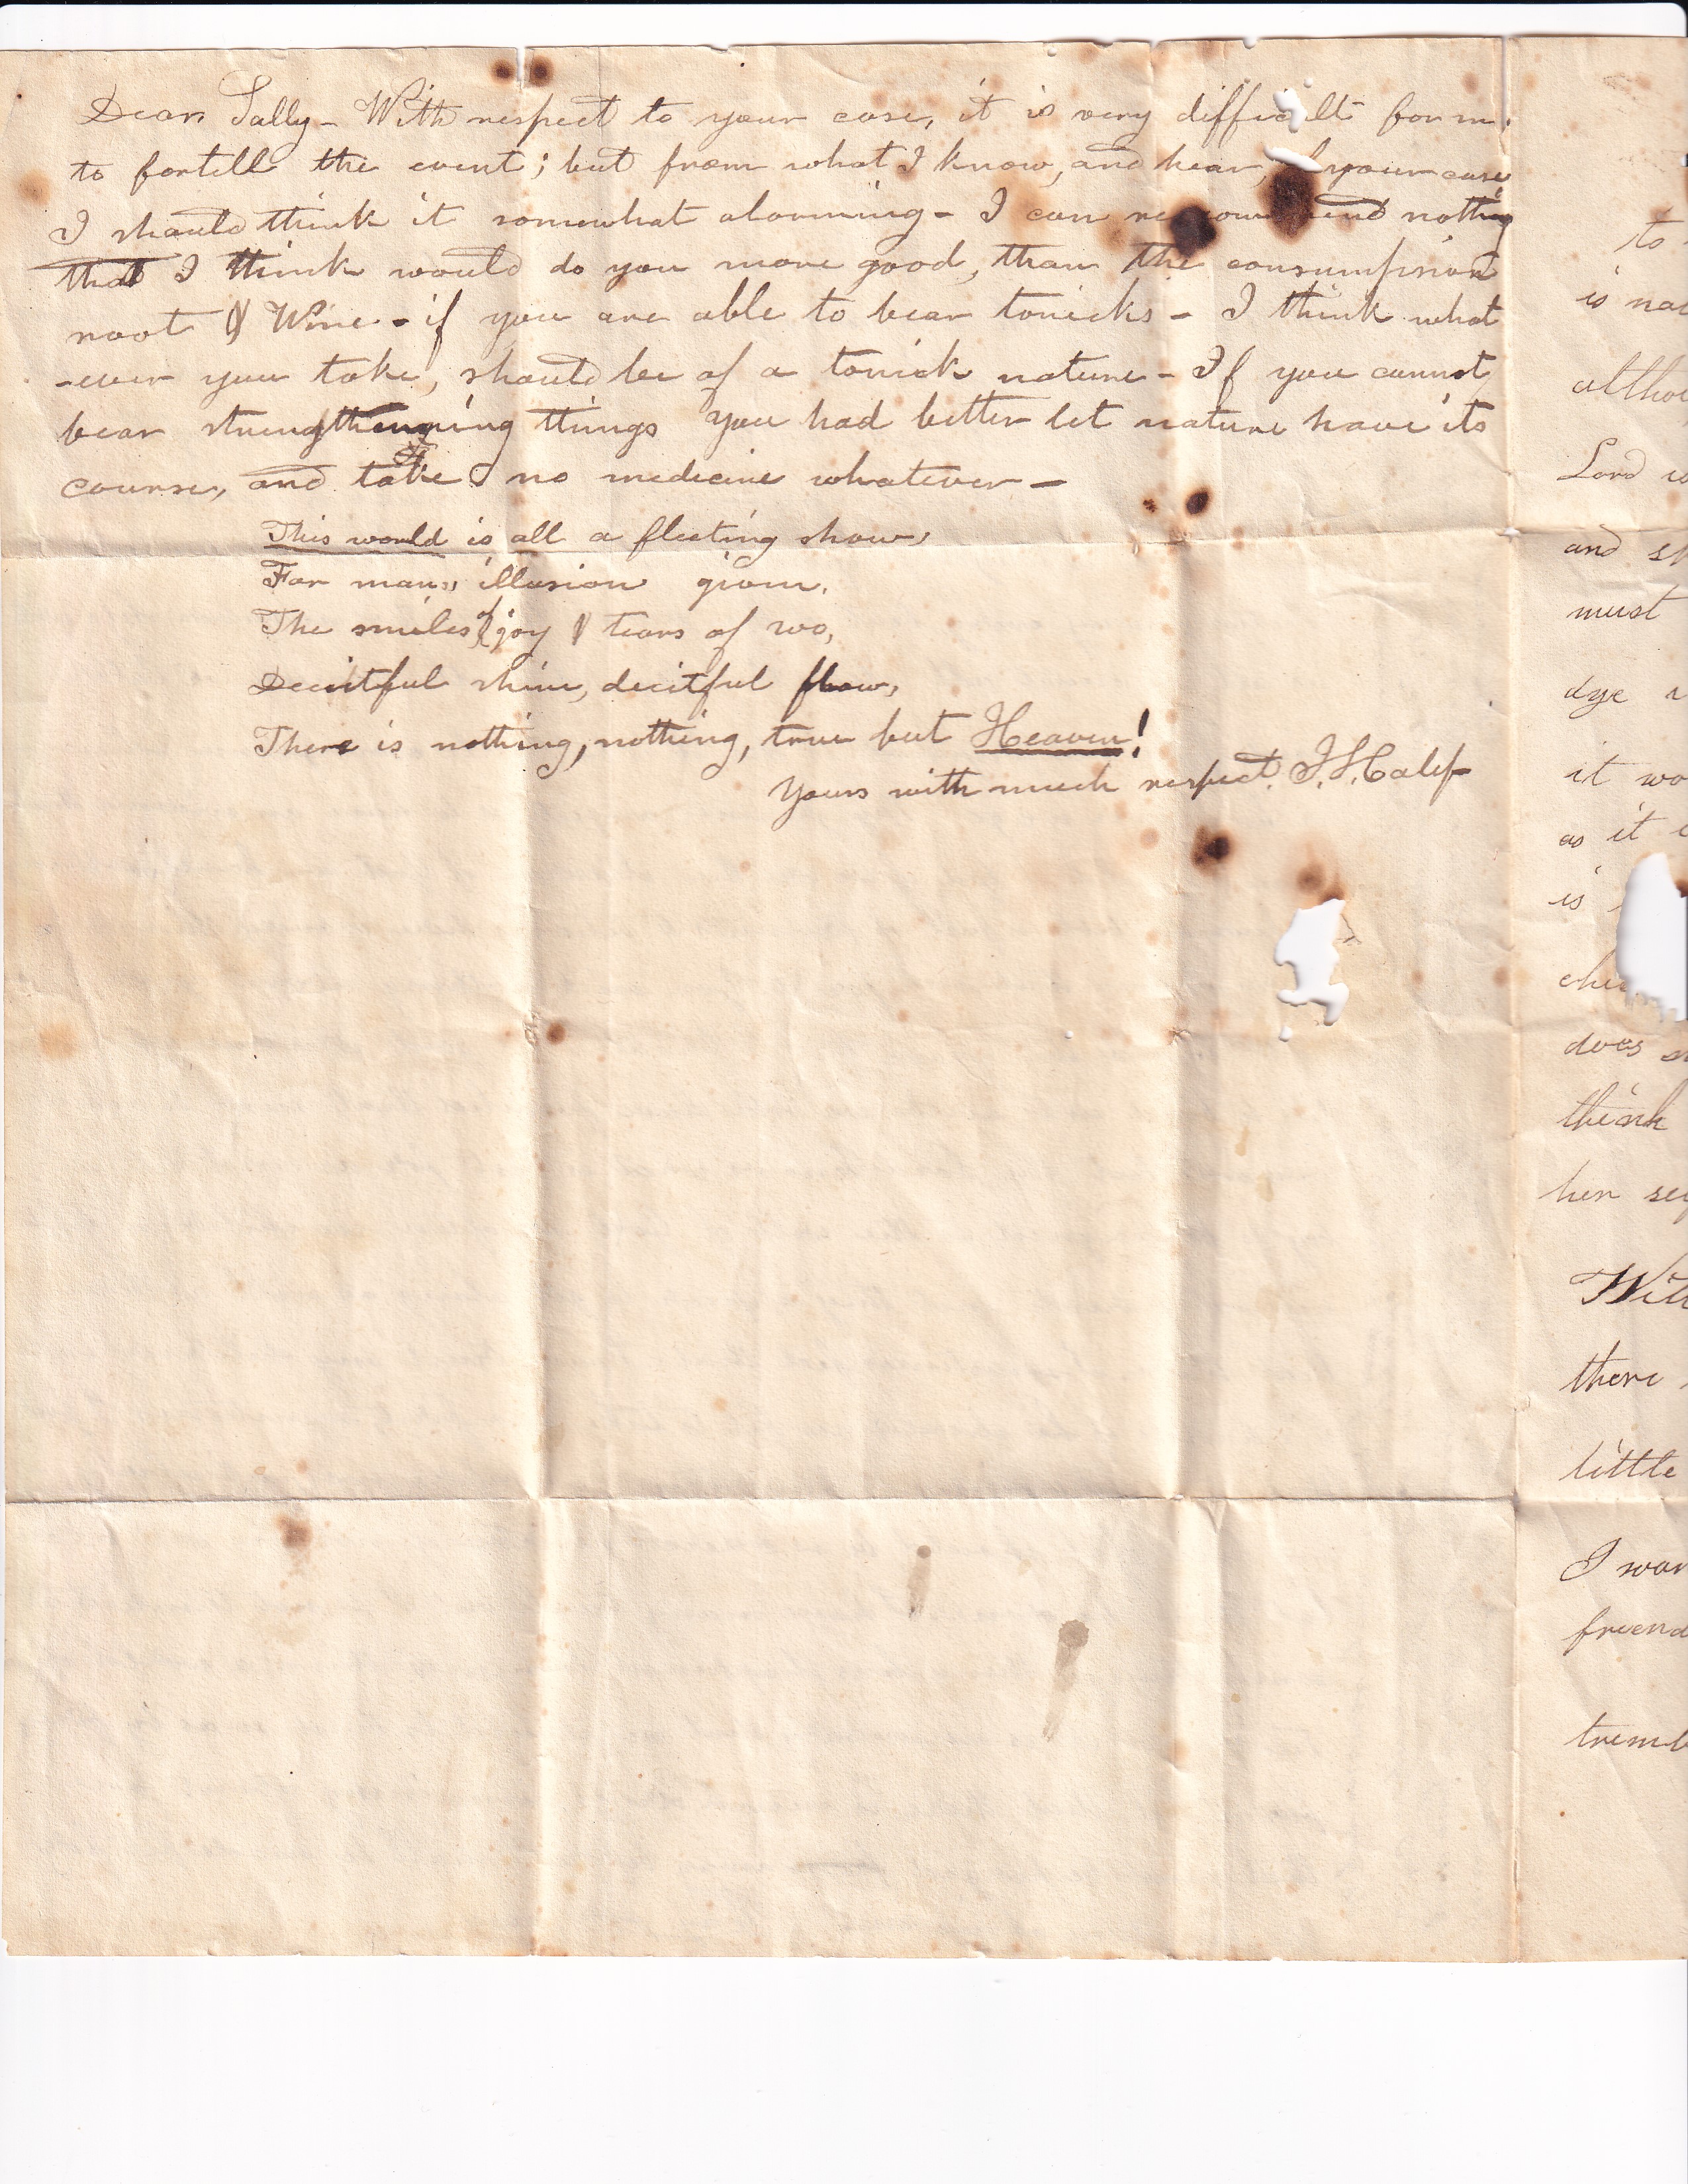 Dear Sally - With respect to your case, it is very difficult for me
to fortell the event; but from what I know, and hear, of your case
I should think it somewhat alarming - I can recommend nothing
that I think would do you more good, than the consumpsion
root & Wine - if you are able to bear tonicks - I think what
-ever you take, should be of a tonick nature - If you cannot
bear strengthening things you had better let nature have its
course, and take no medicine whatever -
This world is all a fleeting show,
For man,s illusion givin,
The smiles of joy & tears of wo,
Deceitful shine, decitful flow,
There is nothing, nothing, true but Heaven!
Yours with much respect. J. S. Calef
to
is
altho
Lord
and
must
dye
it wo
as it
is
does
think
her
there
little
I
friend
tremb